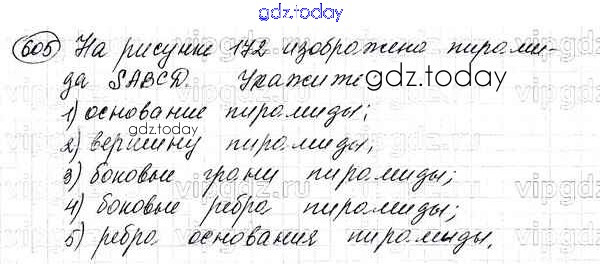 gdz.today
605 На рисунке 172 изображена пирами-
да SABCD. Укажите
gdz.today
1) основание пирамиды;
gdz.today
2) вершину пирамиды;
3) боковые грани пирамиды;
4) боковые ребра пирамиды;
5) ребра основания пирамиды.